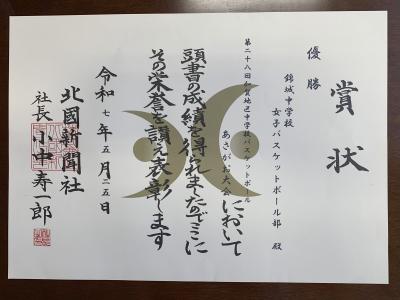 賞状
優勝
錦城中学校
女子バスケットボール部 殿
第二十八回加賀地区中学校バスケットボール
あさがお大会において
頭書の成績を得られましたのでここに
その栄誉を讃え表彰します
令和七年五月二五日
北國新聞社
社長 小中寿一郎